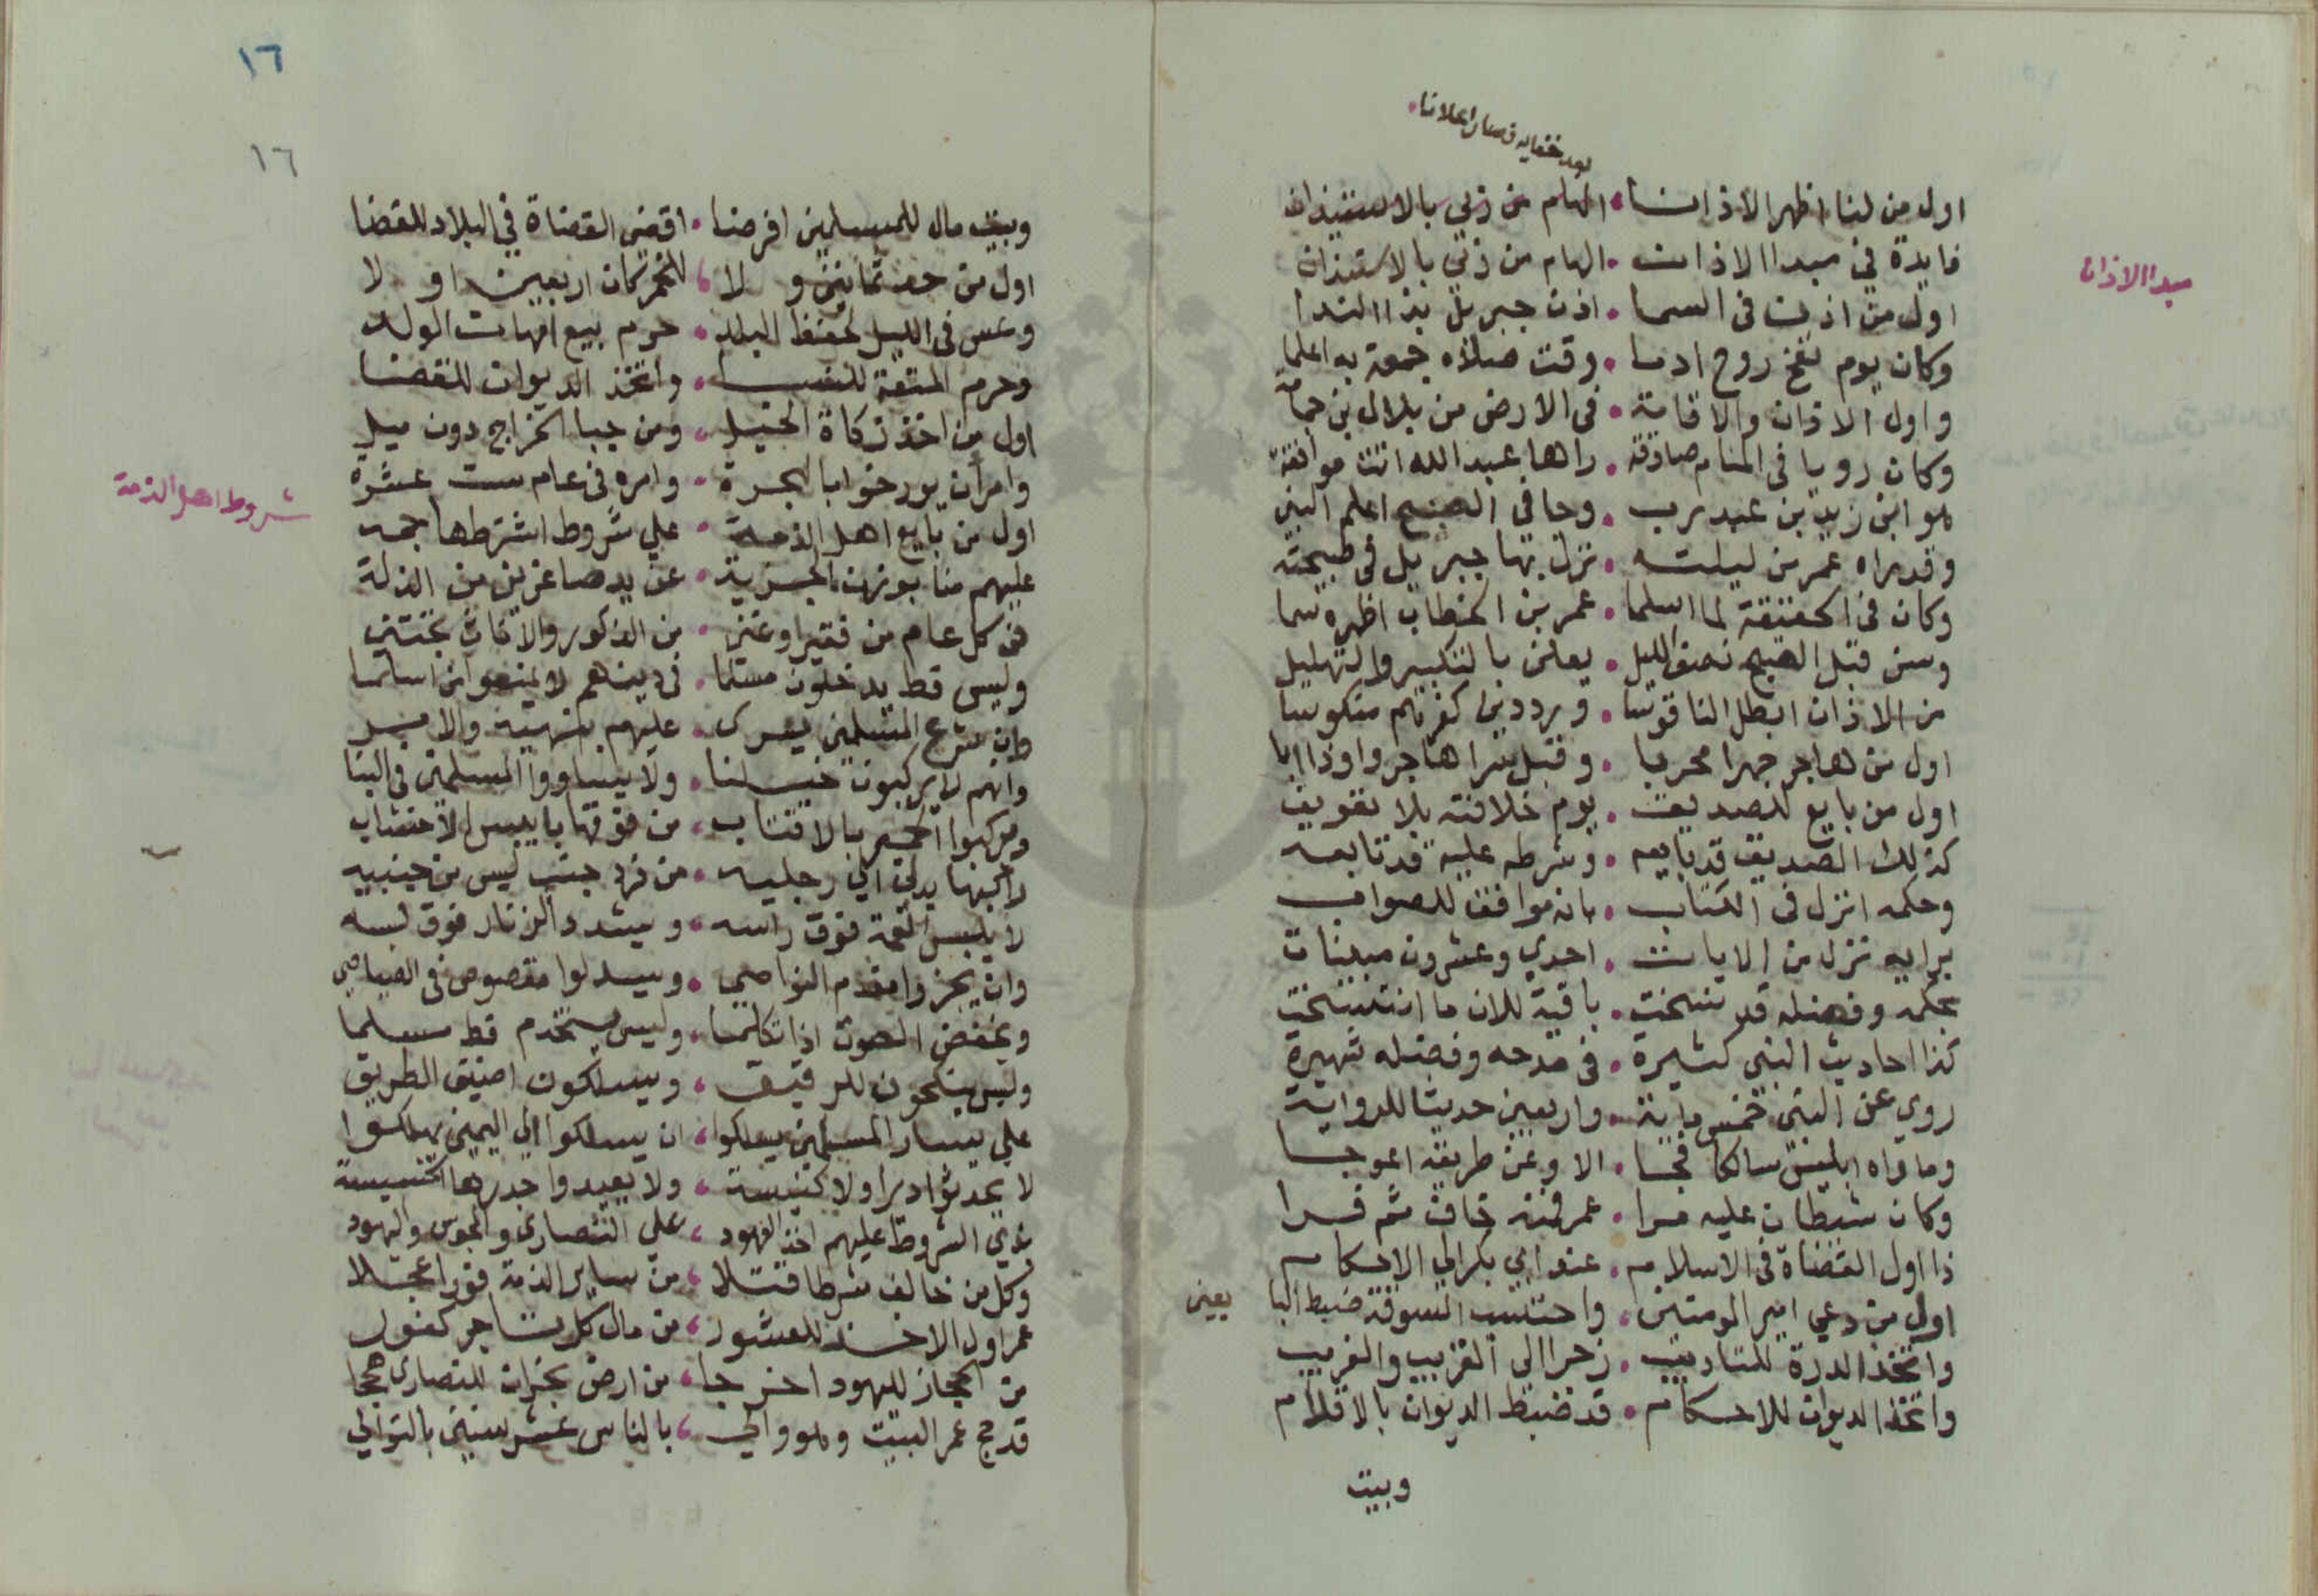 بعد خفايه فصار اعلانا
اول من لنا اظهر الاذانا • الهام من ربي بالاستيذان
مبدا الاذان
فايدة في مبدا الاذان • الهام من ربي بالاستيذان
اول من اذن في السما • اذن جبريل بذا الندا
وكان يوم نفخ روح ادما • وقت صلاه جمعة به اعلما
واول الاذان والاقامة • في الارض من بلال بن حمامة
وكان رويا في المنام صادقة • راها عبد الله اتت موافقة
هو ابن زيد بن عبد رب • وجا في الصبح اعلم النبي
وقد راه عمر من ليلته • نزل بها جبريل في صبيحته
وكان في الحقيقة لما اسلما • عمر بن الخطاب اظهره سما
وسن قبل الصبح نصف الليل • يعلن بالتكبير والتهليل
من الاذان ابطل الناقوسا • ورد دين كفرهم منكوسا
اول من هاجر جهرا محربا • وقبل سرا هاجروا وذا ابا
اول من بايع للصديق • يوم خلافته بلا تعويق
كذلك الصديق قد بايعه • وشرطه عليه قد تابعه
وحكمه انزل في الكتاب • بانه موافق للصواب
برايه نزل من الايات • احدي وعشرون مبينات
بحكمه وفضله قد نسخت • باقية للان ما انتسخت
كذا احاديث النبي كثيرة • في مدحه وفضله شهيرة
روي عن النبي خمس ماية • واربعين حديثا للرواية
وما راه ابليس سالكا فجا • الا وعن طريقه اعوجا
وكان شيطان عليه مرا • عمر فمنه خاف ثم فرا
ذا اول القضاة في الاسلام • عند ابي بكر الي الاحكام
اول من دعي امير المومنين • واحتسب السوقة ضبط البايعين
واتخذ الدرة للتاديب • زجرا الى القريب والغريب
واتخذ الديوان للاحكام • قد ضبط الديوان بالاقلام
وبيت
١٦
١٦
وبيت مال للمسلمين افرضا • اقضي القضاة في البلاد للقضا
اول من حد ثمانين ولا • للخمر كان اربعين اولا
وعس في الليل لحفظ البلد • حرم بيع امهات الولد
وحرم المتعة للنسا • واتخذ الديوان للقضا
اول من اخذ زكاة الخيل • ومن جبا الخراج دون ميل
وامر ان يورخوا بالهجرة • وامره في عام ست عشرة
شروط اهل الذمة
اول من بايع اهل الذمة • علي شروط اشترطها جمه
عليهم منا يودن الجزية • عن يد صاغرين من الذلة
في كل عام من فقير او غني • من الذكور والاناث
وليس قط يدخلون مسلما • في دينهم لا يمنعوا من اسلما
وان شرع المسلمين يجري • عليهم بنهيه والامر
وانهم لا يركبون خيلنا • ولا يساووا المسلمين في البنا
ويركبوا الحمير بالاقتاب • من فوقها يابس الاخشاب
راكبها يدلي الي رجليه • من فرد جنب ليس من جنبيه
لا يلبس العمة فوق راسه • ويشدد الزنار فوق لبسه
وان يجزوا مقدم النواصي • ويسدلوا مقصوص في الصياصي
ويخفض الصوت اذا تكلما • وليس يستخدم قط مسلما
وليس ينكحون للرقيق • ويسلكون اضيق الطريق
علي يسار المسلمين يسلكوا • ان يسلكوا الي اليمين يهلكوا
لا يحدثوا ديرا ولا كنيسة • ولا يعيدوا جدرها الخسيسة
بذي الشروط عليهم اخذ العهود • علي النصاري والمجوس واليهود
وكل من خالف شرطا قتلا • من ساير الذمة فورا عجلا
عمر اول الاخذ للعشور • من مال كل تاجر كفور
من الحجاز لليهود اخرجا • من ارض نجران للنصاري
قد حج عمر البيت وهو والي • بالناس عشر سنين بالتوالي